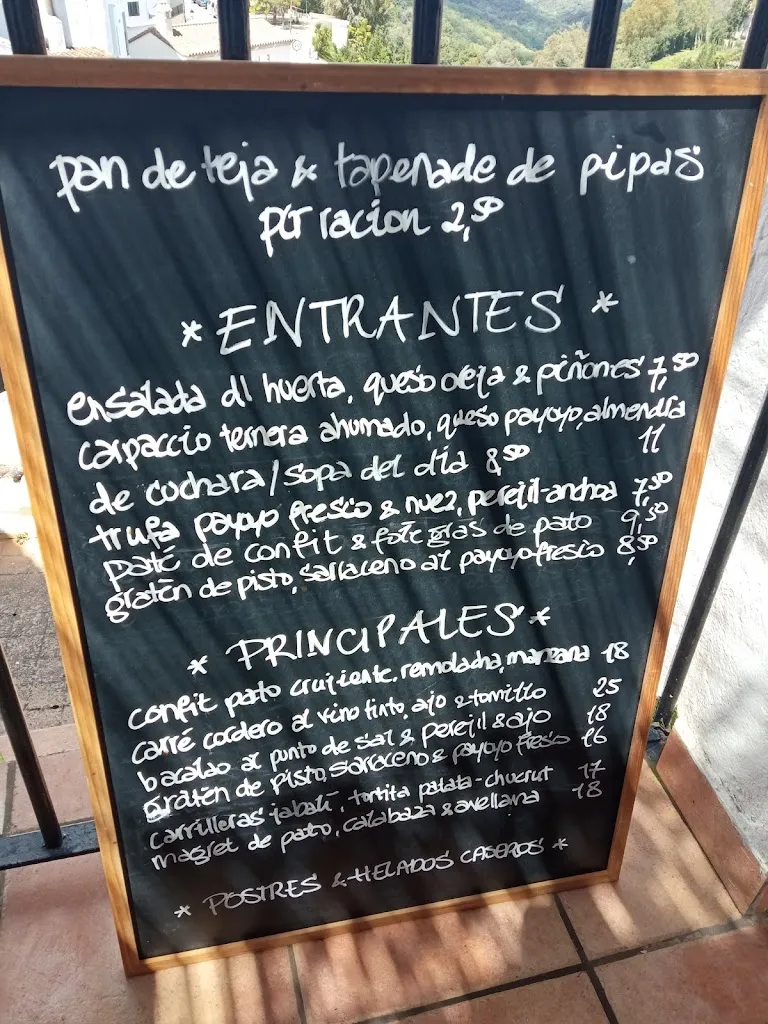 pan de teja & tapenade de pipas
por racion 2,50
* ENTRANTES *
ensalada d' huerta, queso oveja & piñones 7,50
carpaccio ternera ahumado, queso payoyo, almendra 11
de cuchara/sopa del día 8,50
trufa payoyo fresco & nuez, perejil-anchoa 7,50
paté de confit & foie gras de pato 9,50
gratén de pisto, sarraceno al payoyo fresco 8,50
* PRINCIPALES *
confit pato crujiente, remolacha, manzana 18
carré cordero al vino tinto, ajo & tomillo 25
bacalao al punto de sal & perejil & ajo 18
gratén de pisto, sarraceno & payoyo fresco 16
carrilleras jabalí, tortita patata-chucrut 17
magret de pato, calabaza & avellana 18
* POSTRES & HELADOS CASEROS *